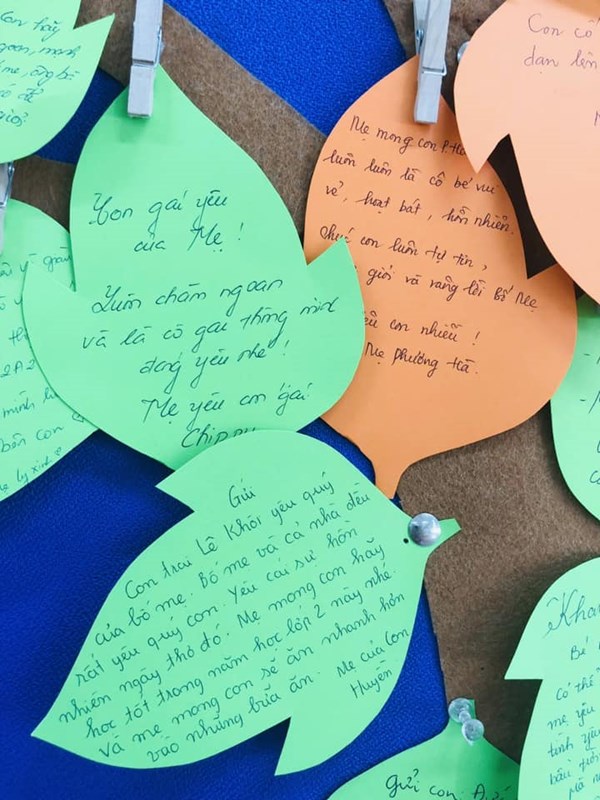 Con hãy
ngoan, mạnh
Con gái yêu
của Mẹ !
Luôn chăm ngoan
và là cô gái thông minh
đáng yêu nhé !
Mẹ yêu con gái
Chippy
Mẹ mong con P.Hà
luôn luôn là cô bé vui
vẻ, hoạt bát, hồn nhiên.
con luôn tự tin,
giỏi và vâng lời Bố Mẹ
con nhiều !
Mẹ Phương Hà.
Con cố
dạn lên
Gửi
Con trai Lê Khôi yêu quý
của bố mẹ. Bố mẹ và cả nhà đều
rất yêu quý con. Yêu cái sự hồn
nhiên ngây thơ đó. Mẹ mong con hãy
học tốt trong năm học lớp 2 này nhé.
và mẹ mong con sẽ ăn nhanh hơn
vào những bữa ăn. Mẹ của con
Huyền
2A2
minh
bên con
Khan
Bé
Có thể
mẹ yêu
tình yêu
Gửi con